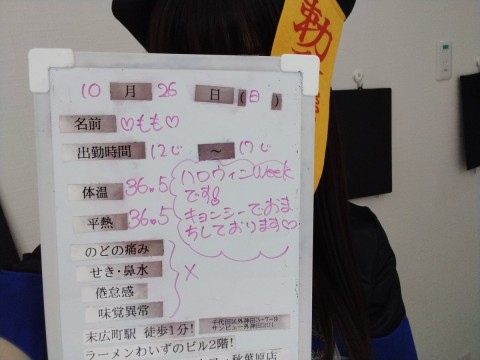 勅
10 月 26 日 (日)
名前 ♡もも♡
出勤時間 12じ ～ 17じ
体温 36.5
平熱 36.5
ハロウィンweek
です
キョンシーでおま
ちしております♡
のどの痛み
せき・鼻水
倦怠感
味覚異常
×
末広町駅 徒歩1分!
千代田区外神田3-7-8
ラーメンわいずのビル2階!
秋葉原店